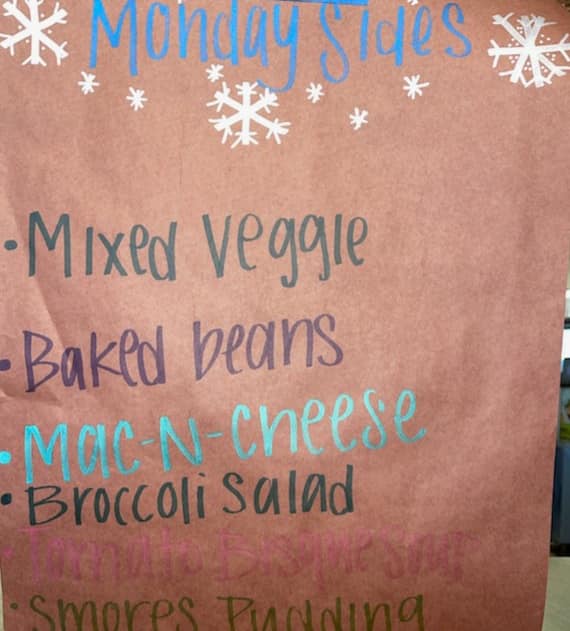 Monday Sides
• Mixed Veggie
• Baked beans
• Mac-N-Cheese
• Broccoli Salad
• Tomato Bisque Soup
• Smores Pudding